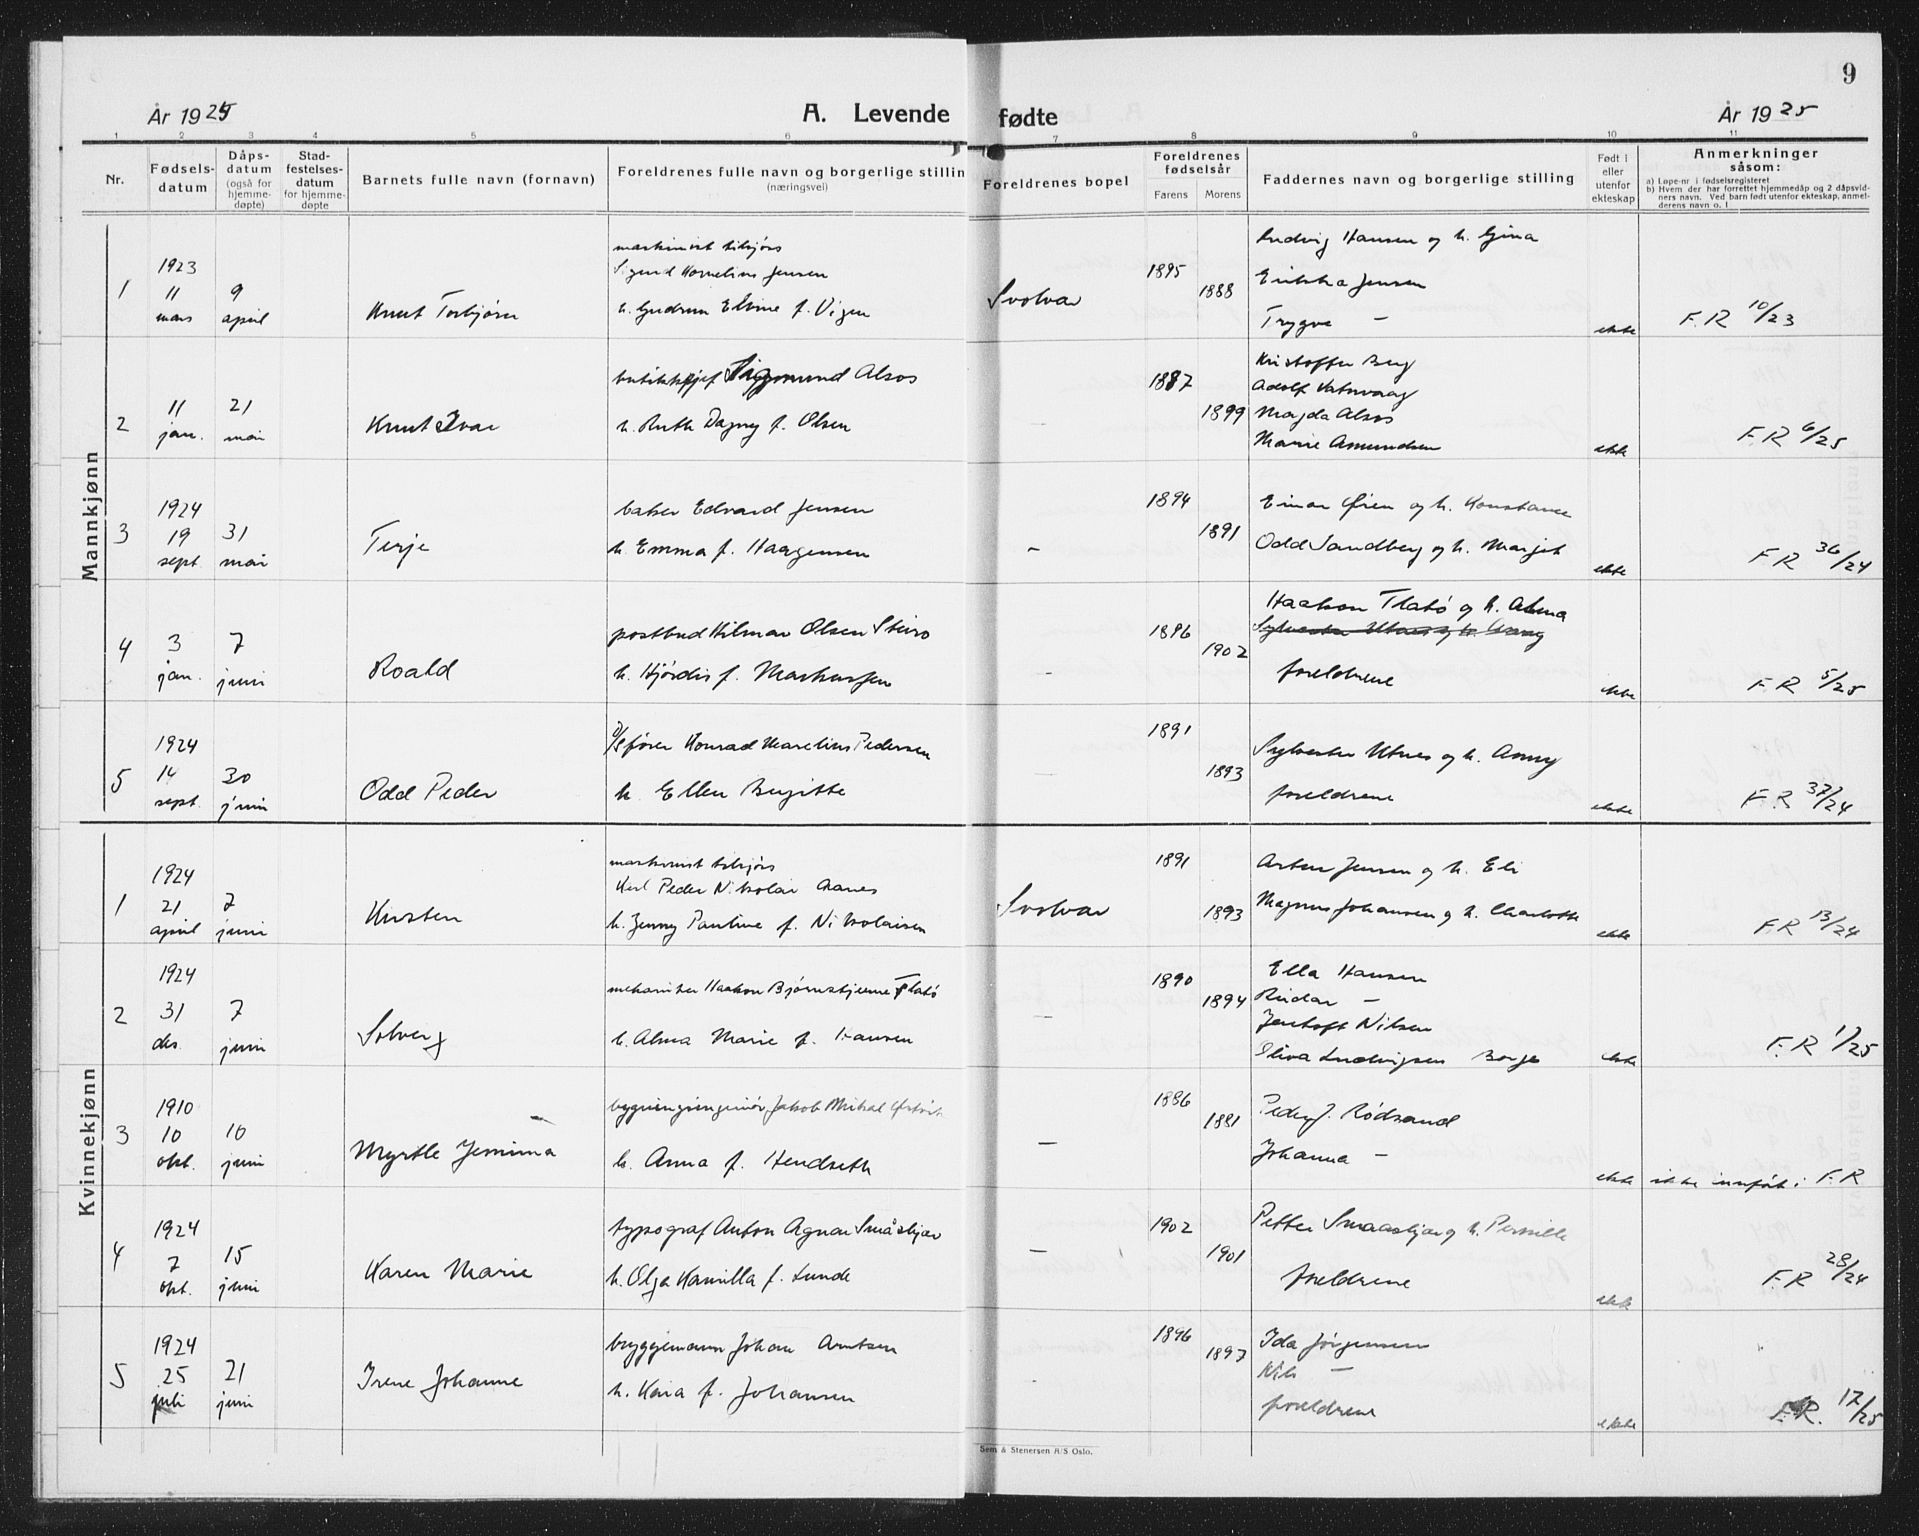 9
År 1925
A. Levende fødte
År 1925
1 2 3 4 5 6 7 8 9 10 11
Nr.
Fødsels-datum
Dåps-datum (også for hjemme-døpte)
Stad-festelses-datum for hjemme-døpte
Barnets fulle navn (fornavn)
Foreldrenes fulle navn og borgerlige stilling (næringsvei)
Foreldrenes bopel
Foreldrenes fødselsår
Farens Morens
Faddernes navn og borgerlige stilling
Født i eller utenfor ekteskap
Anmerkninger såsom:
a) Løpe-nr i fødselsregisteret
b) Hvem der har forrettet hjemmedåp og 2 dåpsvid-
ners navn. Ved barn født utenfor ekteskap, anmel-
derens navn o. l
Mannkjønn
1
1923 11 mars
9 april
Knut Torbjørn
maskinist
Sigurd Kornelius Jensen
h. Gudrun Elvine f. Vigen
Svolvær
1895
1888
Ludvig Hansen og h. Gina
Jensen
Trygve —
ekte
F.R 10/23
2
11 jan.
21 mai
Knut Ivar
Sigmund Alsos
h. Ruth Dagny f. Olsen
-
1887
1899
Kristoffer Berg
Adolf Vatnvaag
Magda Alsos
Marie Amundsen
ekte
F.R 6/25
3
1924 19 sept.
31 mai
Terje
baker Edvard Jensen
h. Emma f. Haagensen
-
1894
1891
Einar Øien og h. Konstance
Odd Sandberg og h. Margit
ekte
F.R 36/24
4
3 jan.
7 juni
Roald
postbud Hilmar Olsen Stiro
h. Hjørdis f. Markussen
-
1896
1902
Haakon Flatø og h. Alma
Sylvester Utnes og h. Anny
foreldrene
ekte
F.R 5/25
5
1924 14 sept.
30 juni
Odd Peder
fører Konrad Marelius Pedersen
h. Ellen Birgitte
-
1891
1893
Sylvester Utnes og h. Anny
foreldrene
ekte
F.R 37/24
Kvinnekjønn
1
1924 21 april
7 juni
Kirsten
maskinist
Karl Peder Nikolai Aanes
h. Jenny Pauline f. Nikolaisen
Svolvær
1891
1893
Jensen og h. Eli
Magnus Johansen og h. Charlotte
ekte
F.R 13/24
2
1924 31 des.
7 juni
Solveig
mekaniker Haakon Bjørnstjerne Flatø
h. Alma Marie f. Hansen
-
1890
1894
Ella Hansen
Reidar —
Jentoft Nilsen
Oliva Ludvigsen Borge
ekte
F.R 1/25
3
1910 10 okt.
10 juni
Myrtle Jemima
bygningsingeniør Jakob Mikal
h. Anna f. Hendseth
-
1886
1881
Peder J. Rødsand
Johanna —
ekte
ikke innført i F.R
4
1924 7 okt.
15 juni
Karen Marie
typograf Anton Agnar Småskjær
h. Olga Kamilla f. Lunde
-
1902
1901
Petter Smaaskjær og h. Pernille
foreldrene
ekte
F.R 28/24
5
1924 25 juli
21 juni
Irene Johanne
bryggemann Johan Arntsen
h. Kaia f. Johansen
1896
1897
Ida Jørgensen
Nils —
foreldrene
ekte
F.R. 17/25
Sem & Stenersen A/S Oslo.